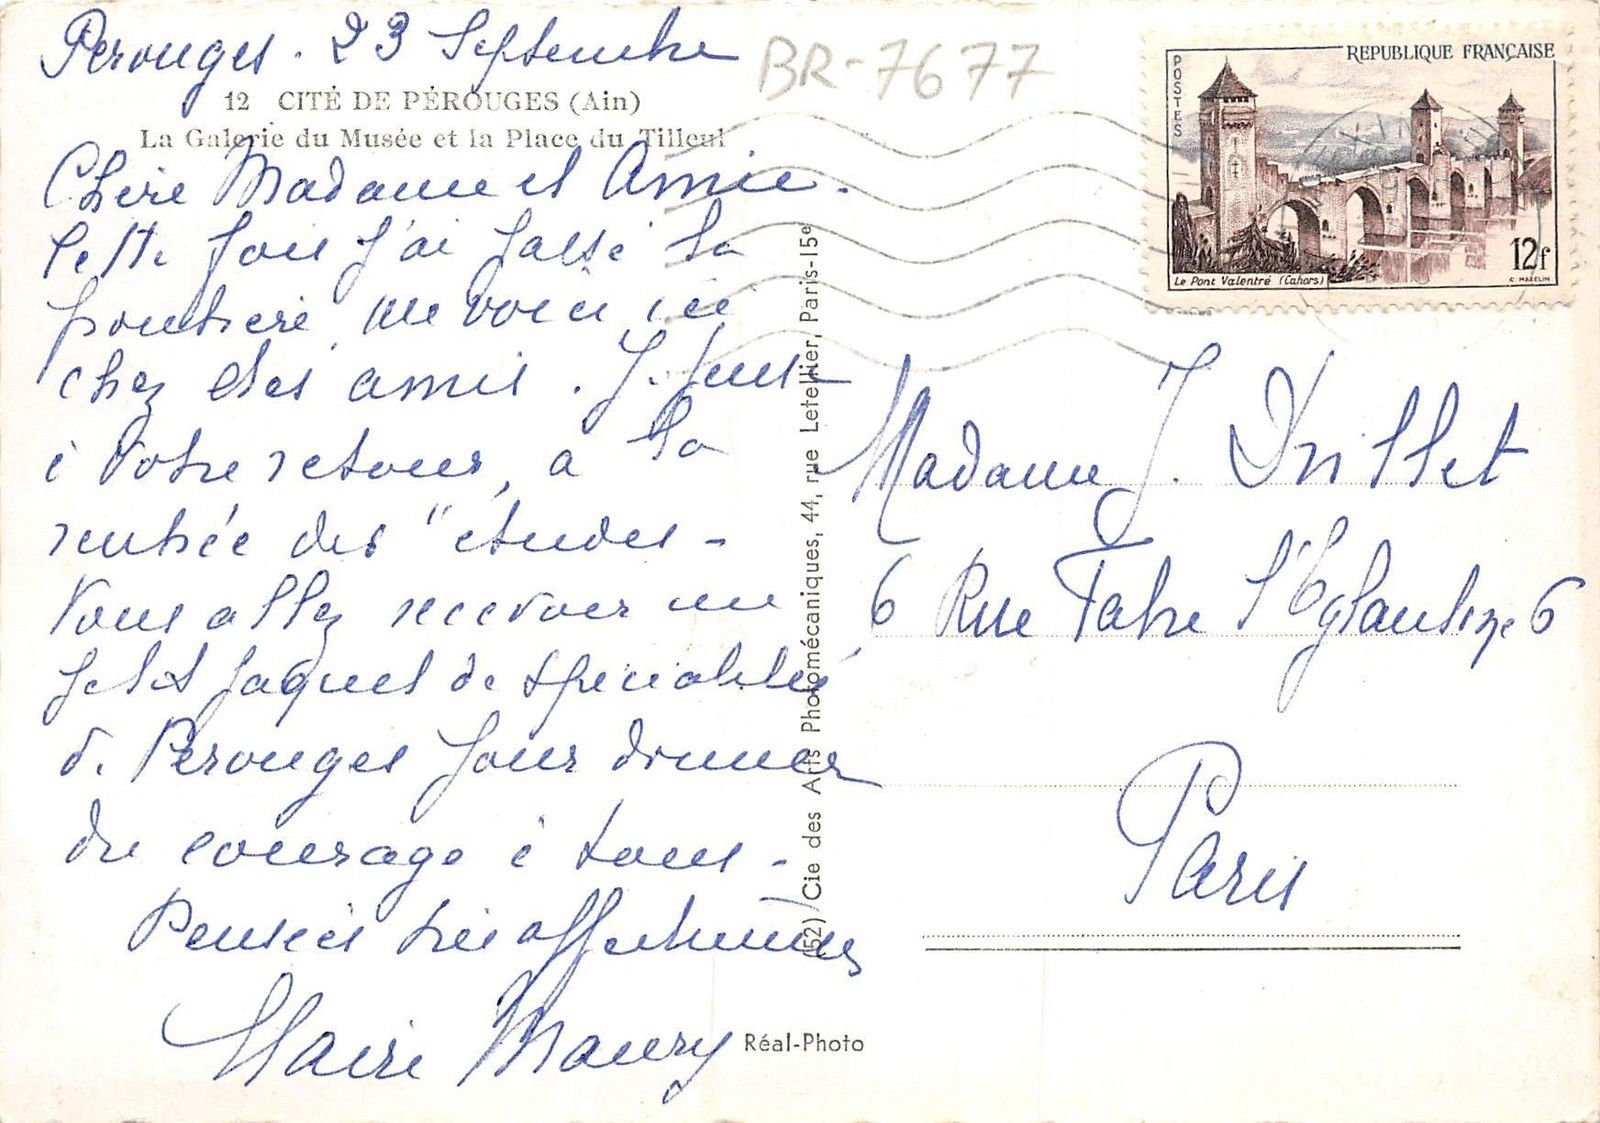 Perouges. 23 Septembre
12 CITÉ DE PÉROUGES (Ain)
La Galerie du Musée et la Place du Tilleul
Chère Madame et Amie.
Cette fois j'ai passé la
frontière me voici ici
chez des amis. Je pense
à votre retour, à la
rentrée des "études -
Vous allez recevoir un
petit paquet de spécialités
de Perouges pour donner
du courage à tous -
Pensées très affectueuses
Claire Maury
BR-7677
POSTES
REPUBLIQUE FRANÇAISE
12f
Le Pont Valentré (Cahors)
C. MAZELIN
(52) Cie des Arts Photomécaniques, 44, rue Letellier, Paris-15e
Madame J. Drillet
6 Rue Fabre l'Eglantine 6
Paris
Réal-Photo